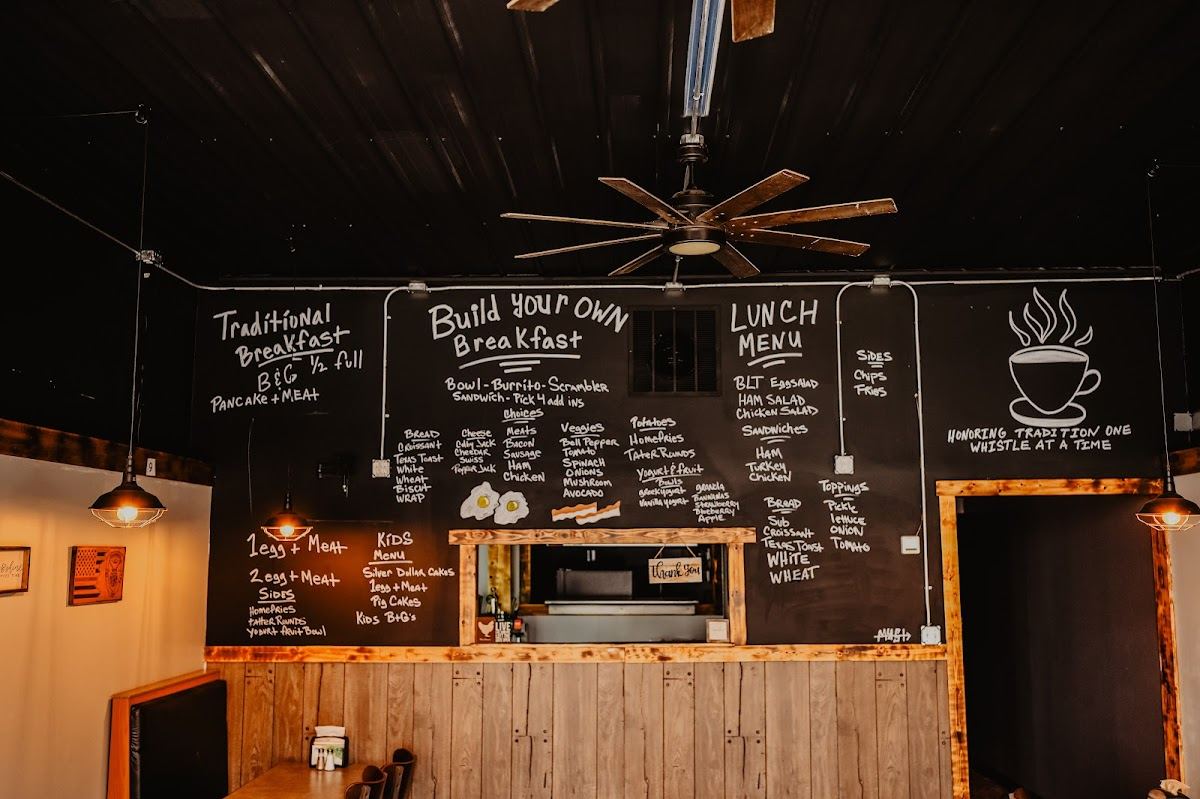 Traditional
Breakfast
B&G ½ full
Pancake + Meat
1 egg + Meat
2 egg + Meat
Sides
Homefries
tater Rounds
Yogurt fruit Bowl
Kids
Menu
Silver Dollar Cakes
1 egg + Meat
Pig Cakes
Kids B+G's
Build your own
Breakfast
Bowl - Burrito - Scrambler
Sandwich - Pick 4 add ins
Choices
Bread
Croissant
Texas Toast
White
Wheat
Biscut
Wrap
Cheese
Colby Jack
Chedar
Swiss
Pepper Jack
Meats
Bacon
Sausage
Ham
Chicken
Veggies
Bell Pepper
Tomato
Spinach
Onions
Mushroom
Avocado
Potatoes
Homefries
Tater Rounds
Yogurt & fruit
Bowls
Greek yogurt
Vanilla yogurt
Granola
Bannanas
Strawberry
Blueberry
Apple
Lunch
Menu
BLT Eggsalad
Ham Salad
Chicken Salad
Sandwiches
Ham
Turkey
Chicken
Bread
Sub
Croissant
Texas Toast
White
Wheat
Sides
Chips
Fries
Toppings
Pickle
lettuce
Onion
Tomato
Honoring Tradition one
whistle at a time
thank you
LIVE
9